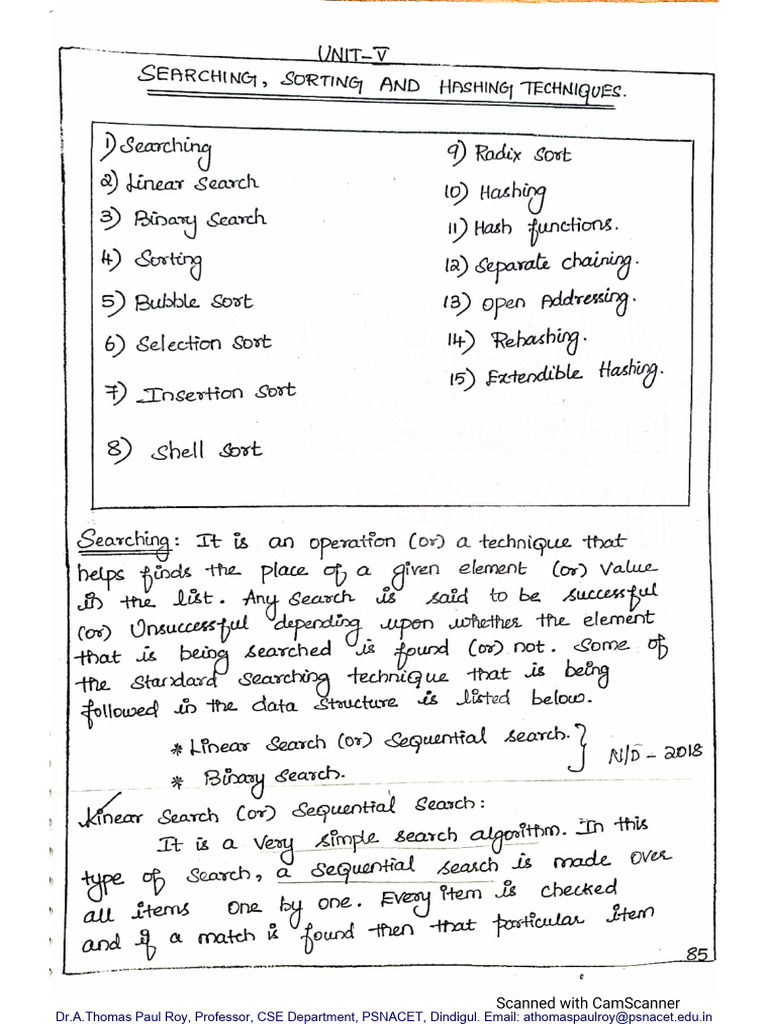 UNIT-V
SEARCHING, SORTING AND HASHING TECHNIQUES.
1) Searching
2) Linear Search
3) Binary Search
4) Sorting
5) Bubble Sort
6) Selection Sort
7) Insertion Sort
8) Shell Sort
9) Radix Sort
10) Hashing
11) Hash functions.
12) Separate chaining.
13) Open Addressing.
14) Rehashing.
15) Extendible Hashing.
Searching: It is an operation (or) a technique that
helps finds the place of a given element (or) value
in the list. Any Search is said to be successful
(or) Unsuccessful depending upon whether the element
that is being searched is found (or) not. Some of
the standard searching technique that is being
followed in the data structure is listed below.
* Linear Search (or) Sequential Search.
* Binary Search.
N/D - 2018
Linear Search (or) Sequential Search:
It is a very simple search algorithm. In this
type of search, a sequential search is made over
all items one by one. Every item is checked
and if a match is found then that particular item
85
Scanned with CamScanner
Dr.A.Thomas Paul Roy, Professor, CSE Department, PSNACET, Dindigul. Email: athomaspaulroy@psnacet.edu.in